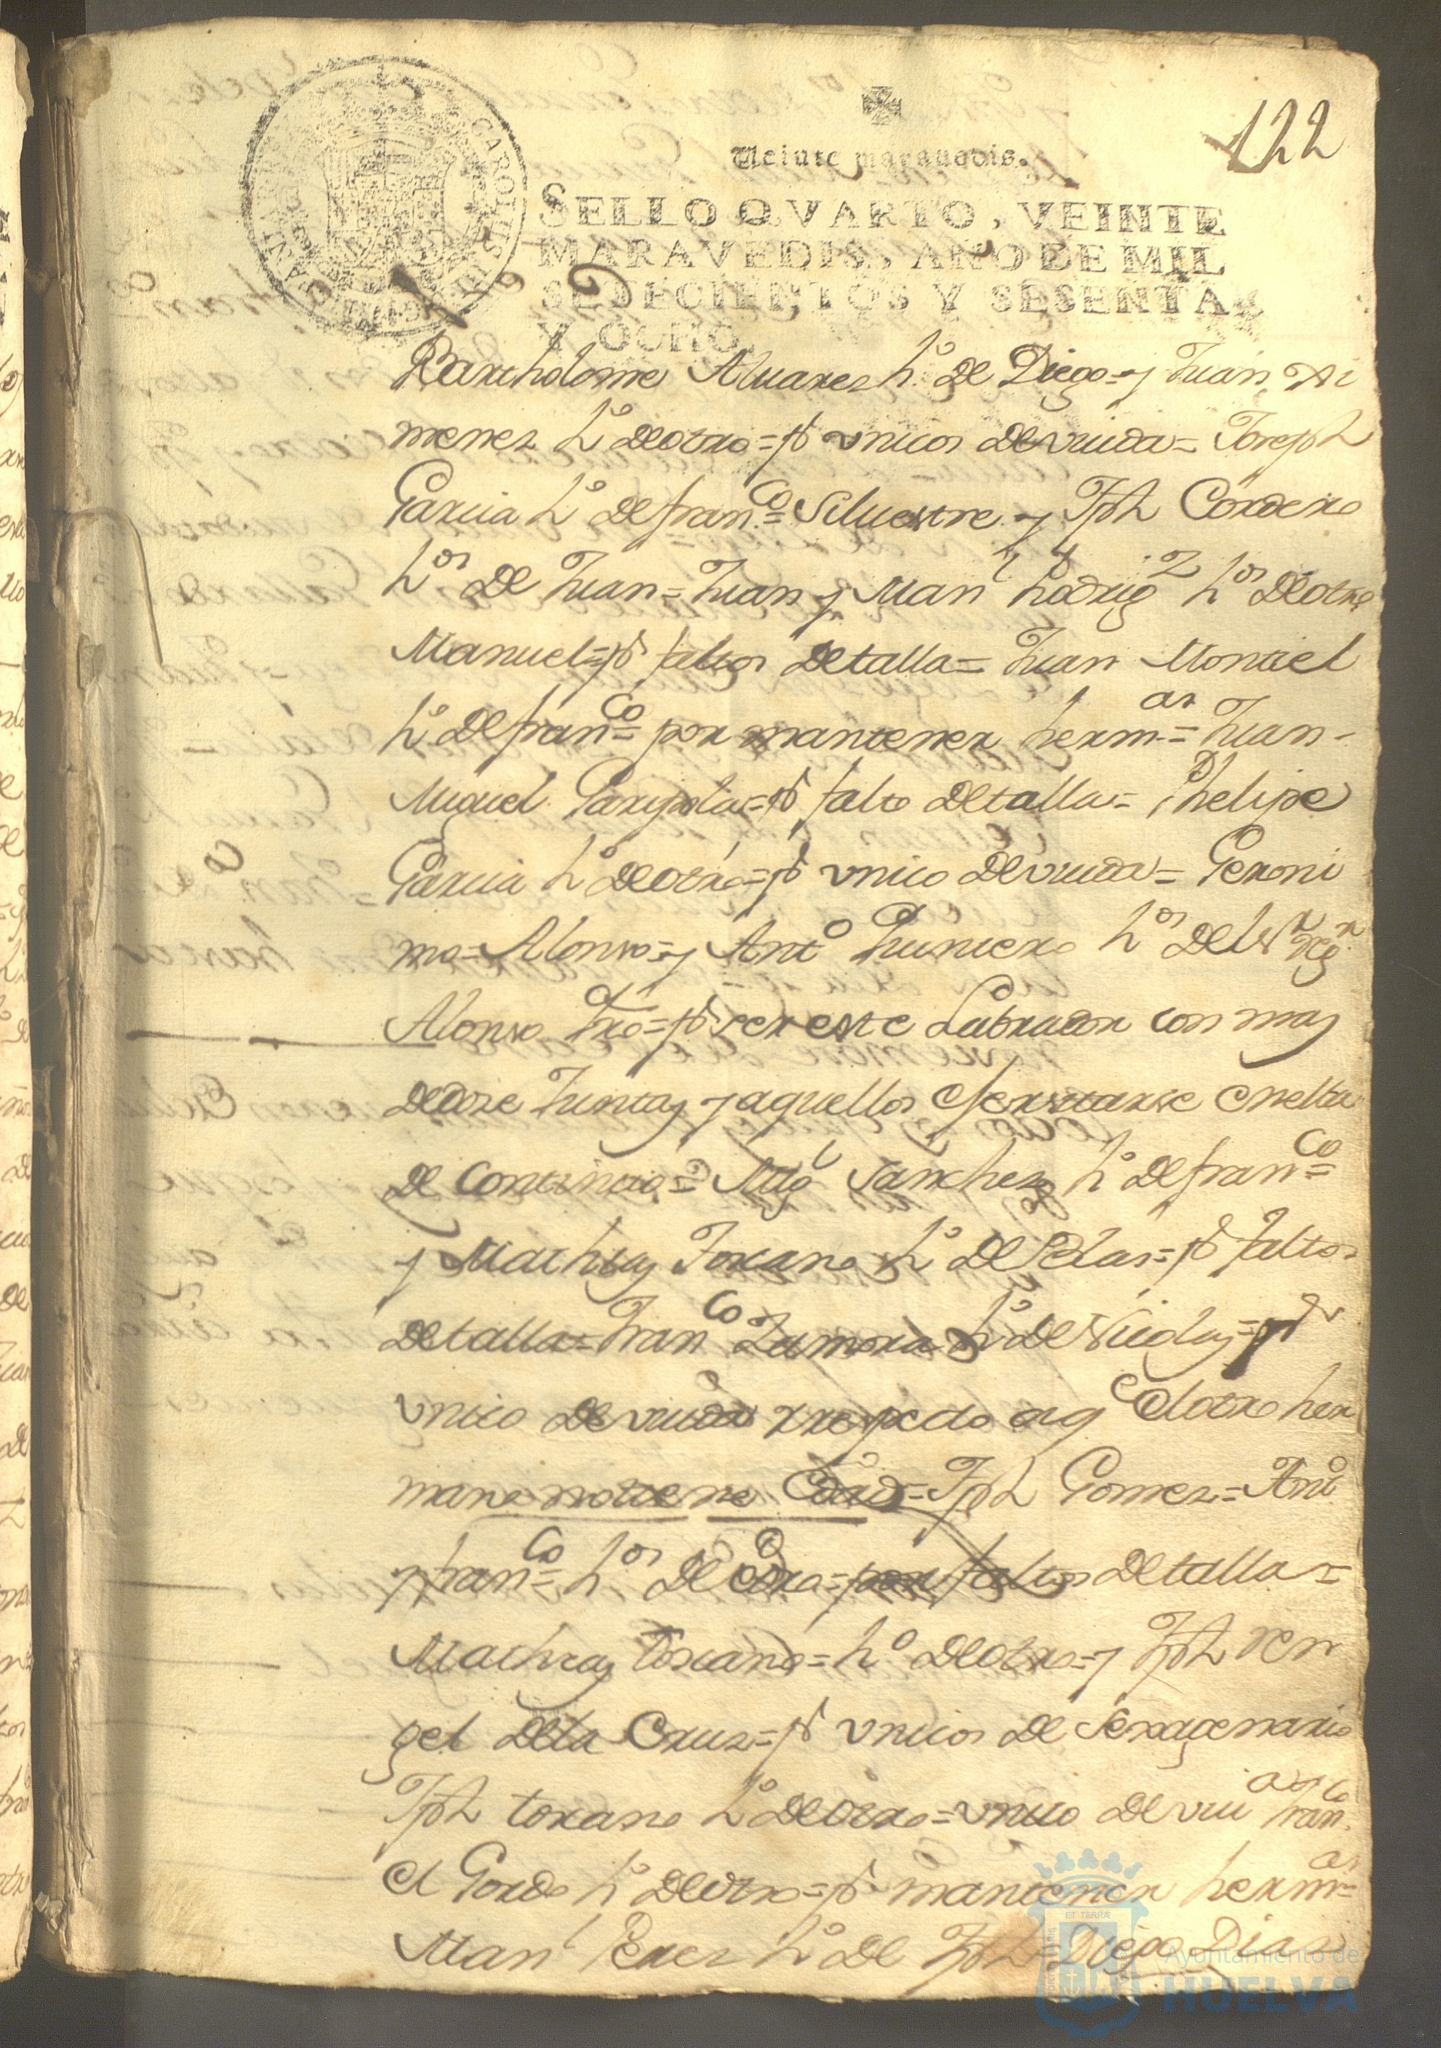 122
Veinte maravedis.
SELLO QVARTO, VEINTE
MARAVEDIS, AÑO DE MIL
SETECIENTOS Y SESENTA
Y OCHO.
Bartholome Aluarez h.º de Diego = y Juan Xi
menez h.º de otro = pr vnicos de viuda = Joseph
Garcia h.º de franco = Siluestre y Jph Cordero
hos De Juan = Juan y Manl Rodrigz hos de otro
Manuel = pr faltos de talla = Juan Montiel
h.º de franco = por mantener hermas = Juan
Miguel = pr falto de talla = Phelipe
Garcia h.º de otro = pr vnico de viuda = Geroni
mo = Alonso = y Anto Quintero hos del Sr regr
Alonso = pr ser este Labrador con mas
de doze Juntas y aquellos exersitarse en elta
de continuo = Migl Sanchez h.º de franco =
y Mathias Toscano h.º de Blas = pr faltos
de talla = Franco Zamora h.º de Nicolas = pr
vnico de viuda respecto a qe el otro her
mano no tiene edad = Jph Gomez = Anto
y franco = hos de otro = por faltos de talla =
Mathias toscano = h.º de otro = y Jph ren
gel de la Cruz = pr vnicos de Sexagenario
Jph toscano h.º de otro = vnico de viua Franco
el Gordo h.º de otro = pr mantener hermas =
Manl Perez h.º de Jph = Diego Diaz
ET TERRÆ
Ayuntamiento de
HUELVA